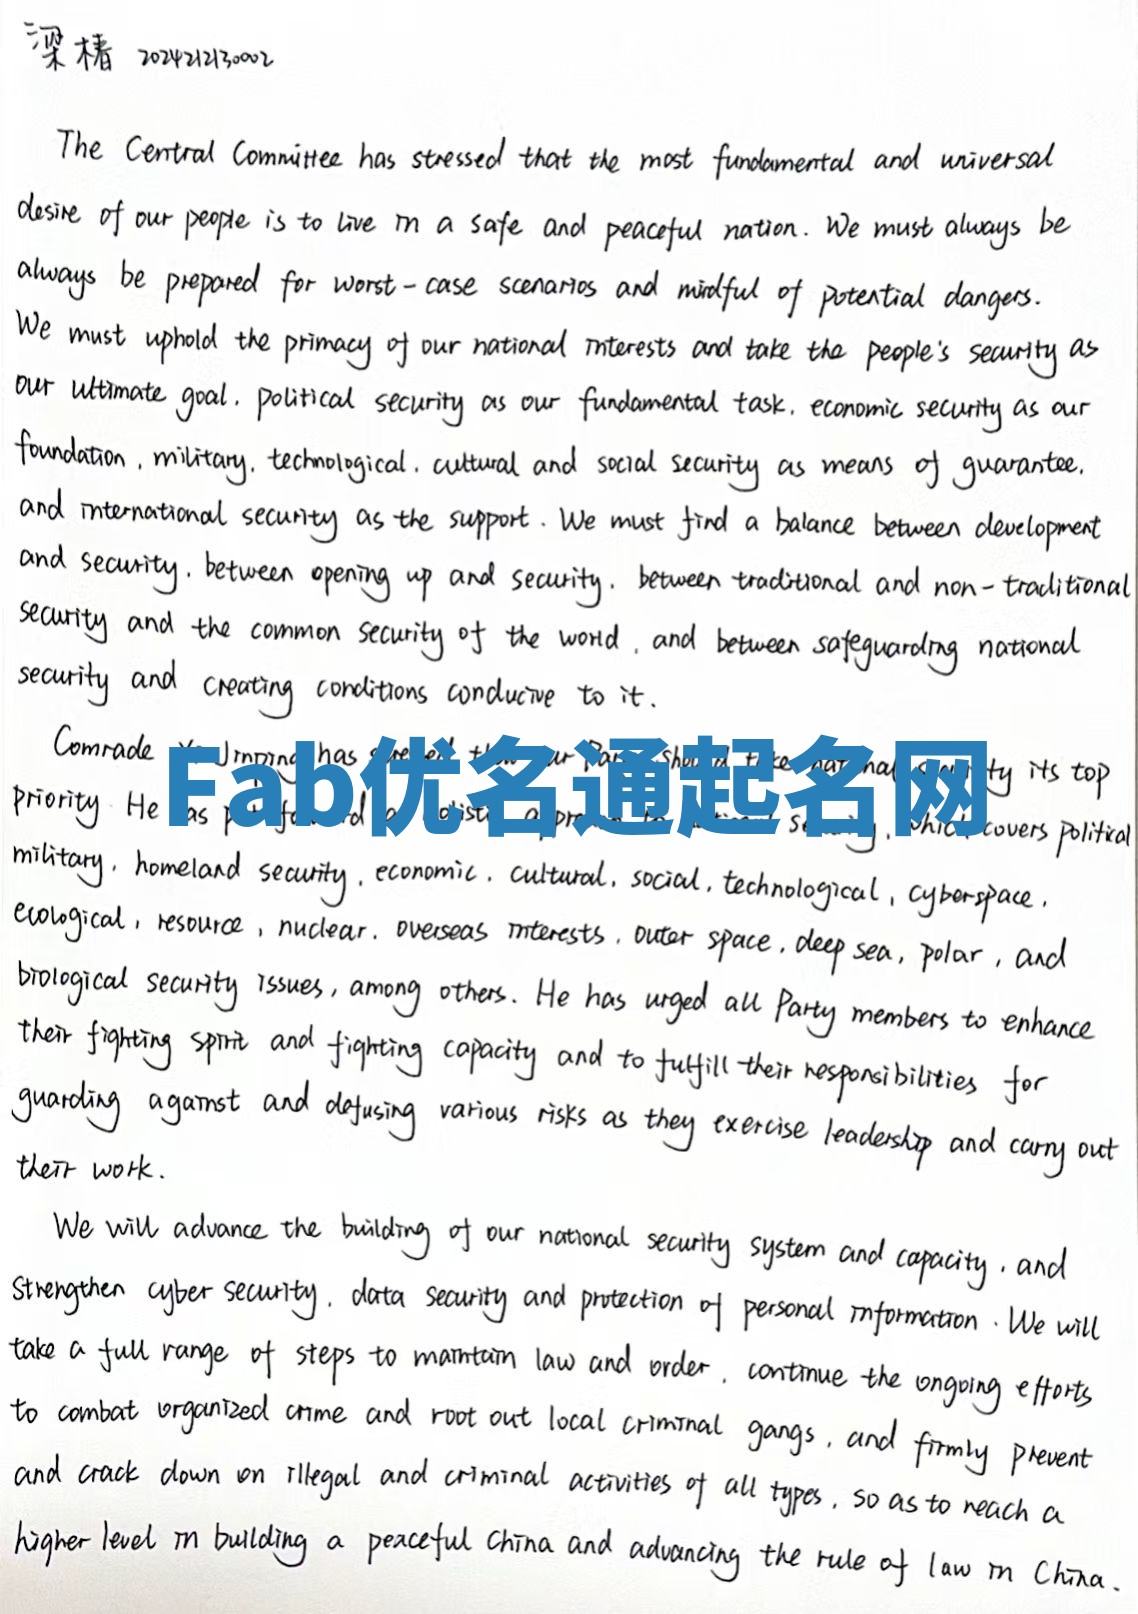 梁椿 2024212130002
The Central Committee has stressed that the most fundamental and universal
desire of our people is to live in a safe and peaceful nation. We must always be
always be prepared for worst-case scenarios and mindful of potential dangers.
We must uphold the primacy of our national interests and take the people's security as
our ultimate goal, political security as our fundamental task, economic security as our
foundation, military, technological, cultural and social security as means of guarantee,
and international security as the support. We must find a balance between development
and security, between opening up and security, between traditional and non-traditional
security and the common security of the world, and between safeguarding national
security and creating conditions conducive to it.
Comrade Jinping has our its top
Fab优名通起名网
priority. He has which covers political
military, homeland security, economic, cultural, social, technological, cyberspace,
ecological, resource, nuclear, overseas interests, outer space, deep sea, polar, and
biological security issues, among others. He has urged all Party members to enhance
their fighting spirit and fighting capacity and to fulfill their responsibilities for
guarding against and defusing various risks as they exercise leadership and carry out
their work.
We will advance the building of our national security system and capacity, and
strengthen cyber security, data security and protection of personal information. We will
take a full range of steps to maintain law and order, continue the ongoing efforts
to combat organized crime and root out local criminal gangs, and firmly prevent
and crack down on illegal and criminal activities of all types, so as to reach a
higher level in building a peaceful China and advancing the rule of law in China.